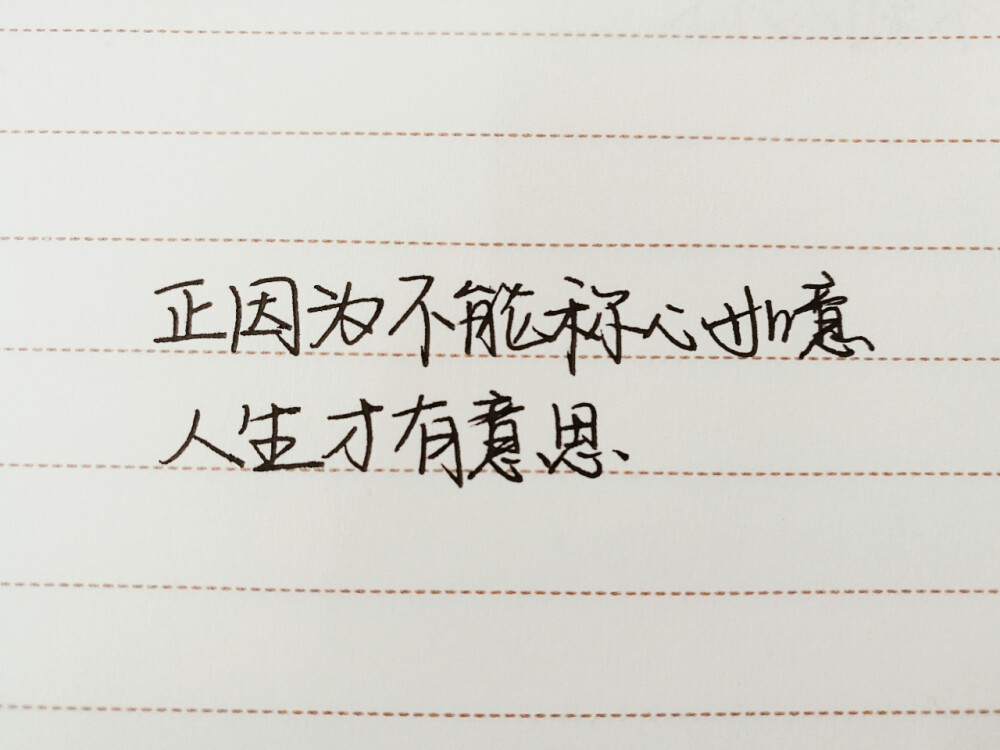 正因为不能称心如意
人生才有意思